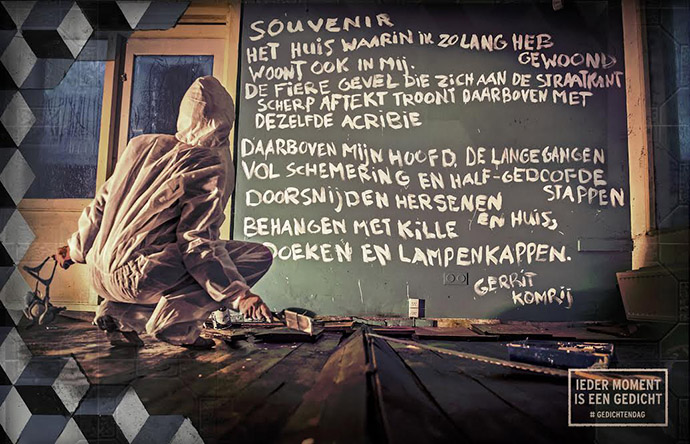 SOUVENIR
HET HUIS WAARIN IK ZO LANG HEB
GEWOOND
WOONT OOK IN MIJ.
DE FIERE GEVEL DIE ZICH AAN DE STRAATKANT
SCHERP AFTEKT TROONT DAARBOVEN MET
DEZELFDE ACRIBIE
DAARBOVEN MIJN HOOFD. DE LANGE GANGEN
VOL SCHEMERING EN HALF-GEDOOFDE
STAPPEN
DOORSNIJDEN HERSENEN
EN HUIS,
BEHANGEN MET KILLE
DOEKEN EN LAMPENKAPPEN.
GERRIT
KOMRIJ
IEDER MOMENT
IS EEN GEDICHT
# GEDICHTENDAG